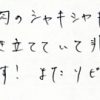 肉のシャキシャキ
き立てていて非
す！またリピ